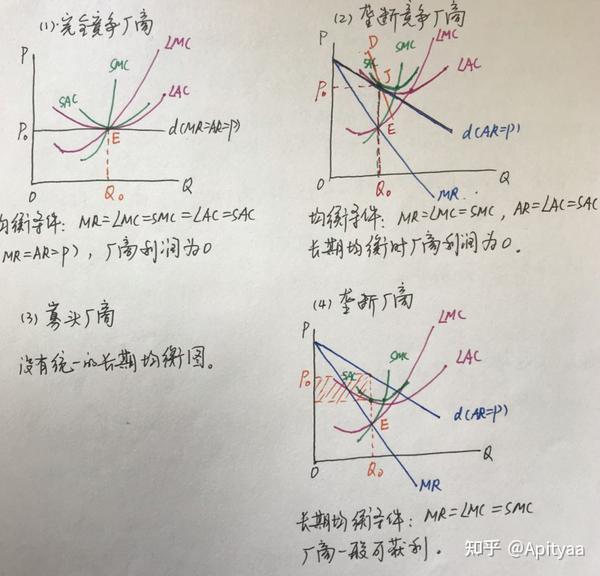 (1) 完全竞争厂商
P
SMC
LMC
SAC
LAC
P₀
E
d(MR=AR=P)
O
Q₀
Q
均衡条件: MR=LMC=SMC=LAC=SAC
MR=AR=P), 厂商利润为0
(2) 垄断竞争厂商
P
D
SMC
LMC
SAC
J
LAC
P₀
E
d(AR=P)
O
Q₀
MR
Q
均衡条件: MR=LMC=SMC, AR=LAC=SAC
长期均衡时厂商利润为0.
(3) 寡头厂商
没有统一的长期均衡图。
(4) 垄断厂商
P
LMC
SMC
LAC
P₀
SAC
d(AR=P)
E
O
Q₀
Q
MR
长期均衡条件: MR=LMC=SMC
厂商一般可获利.
知乎 @Apityaa